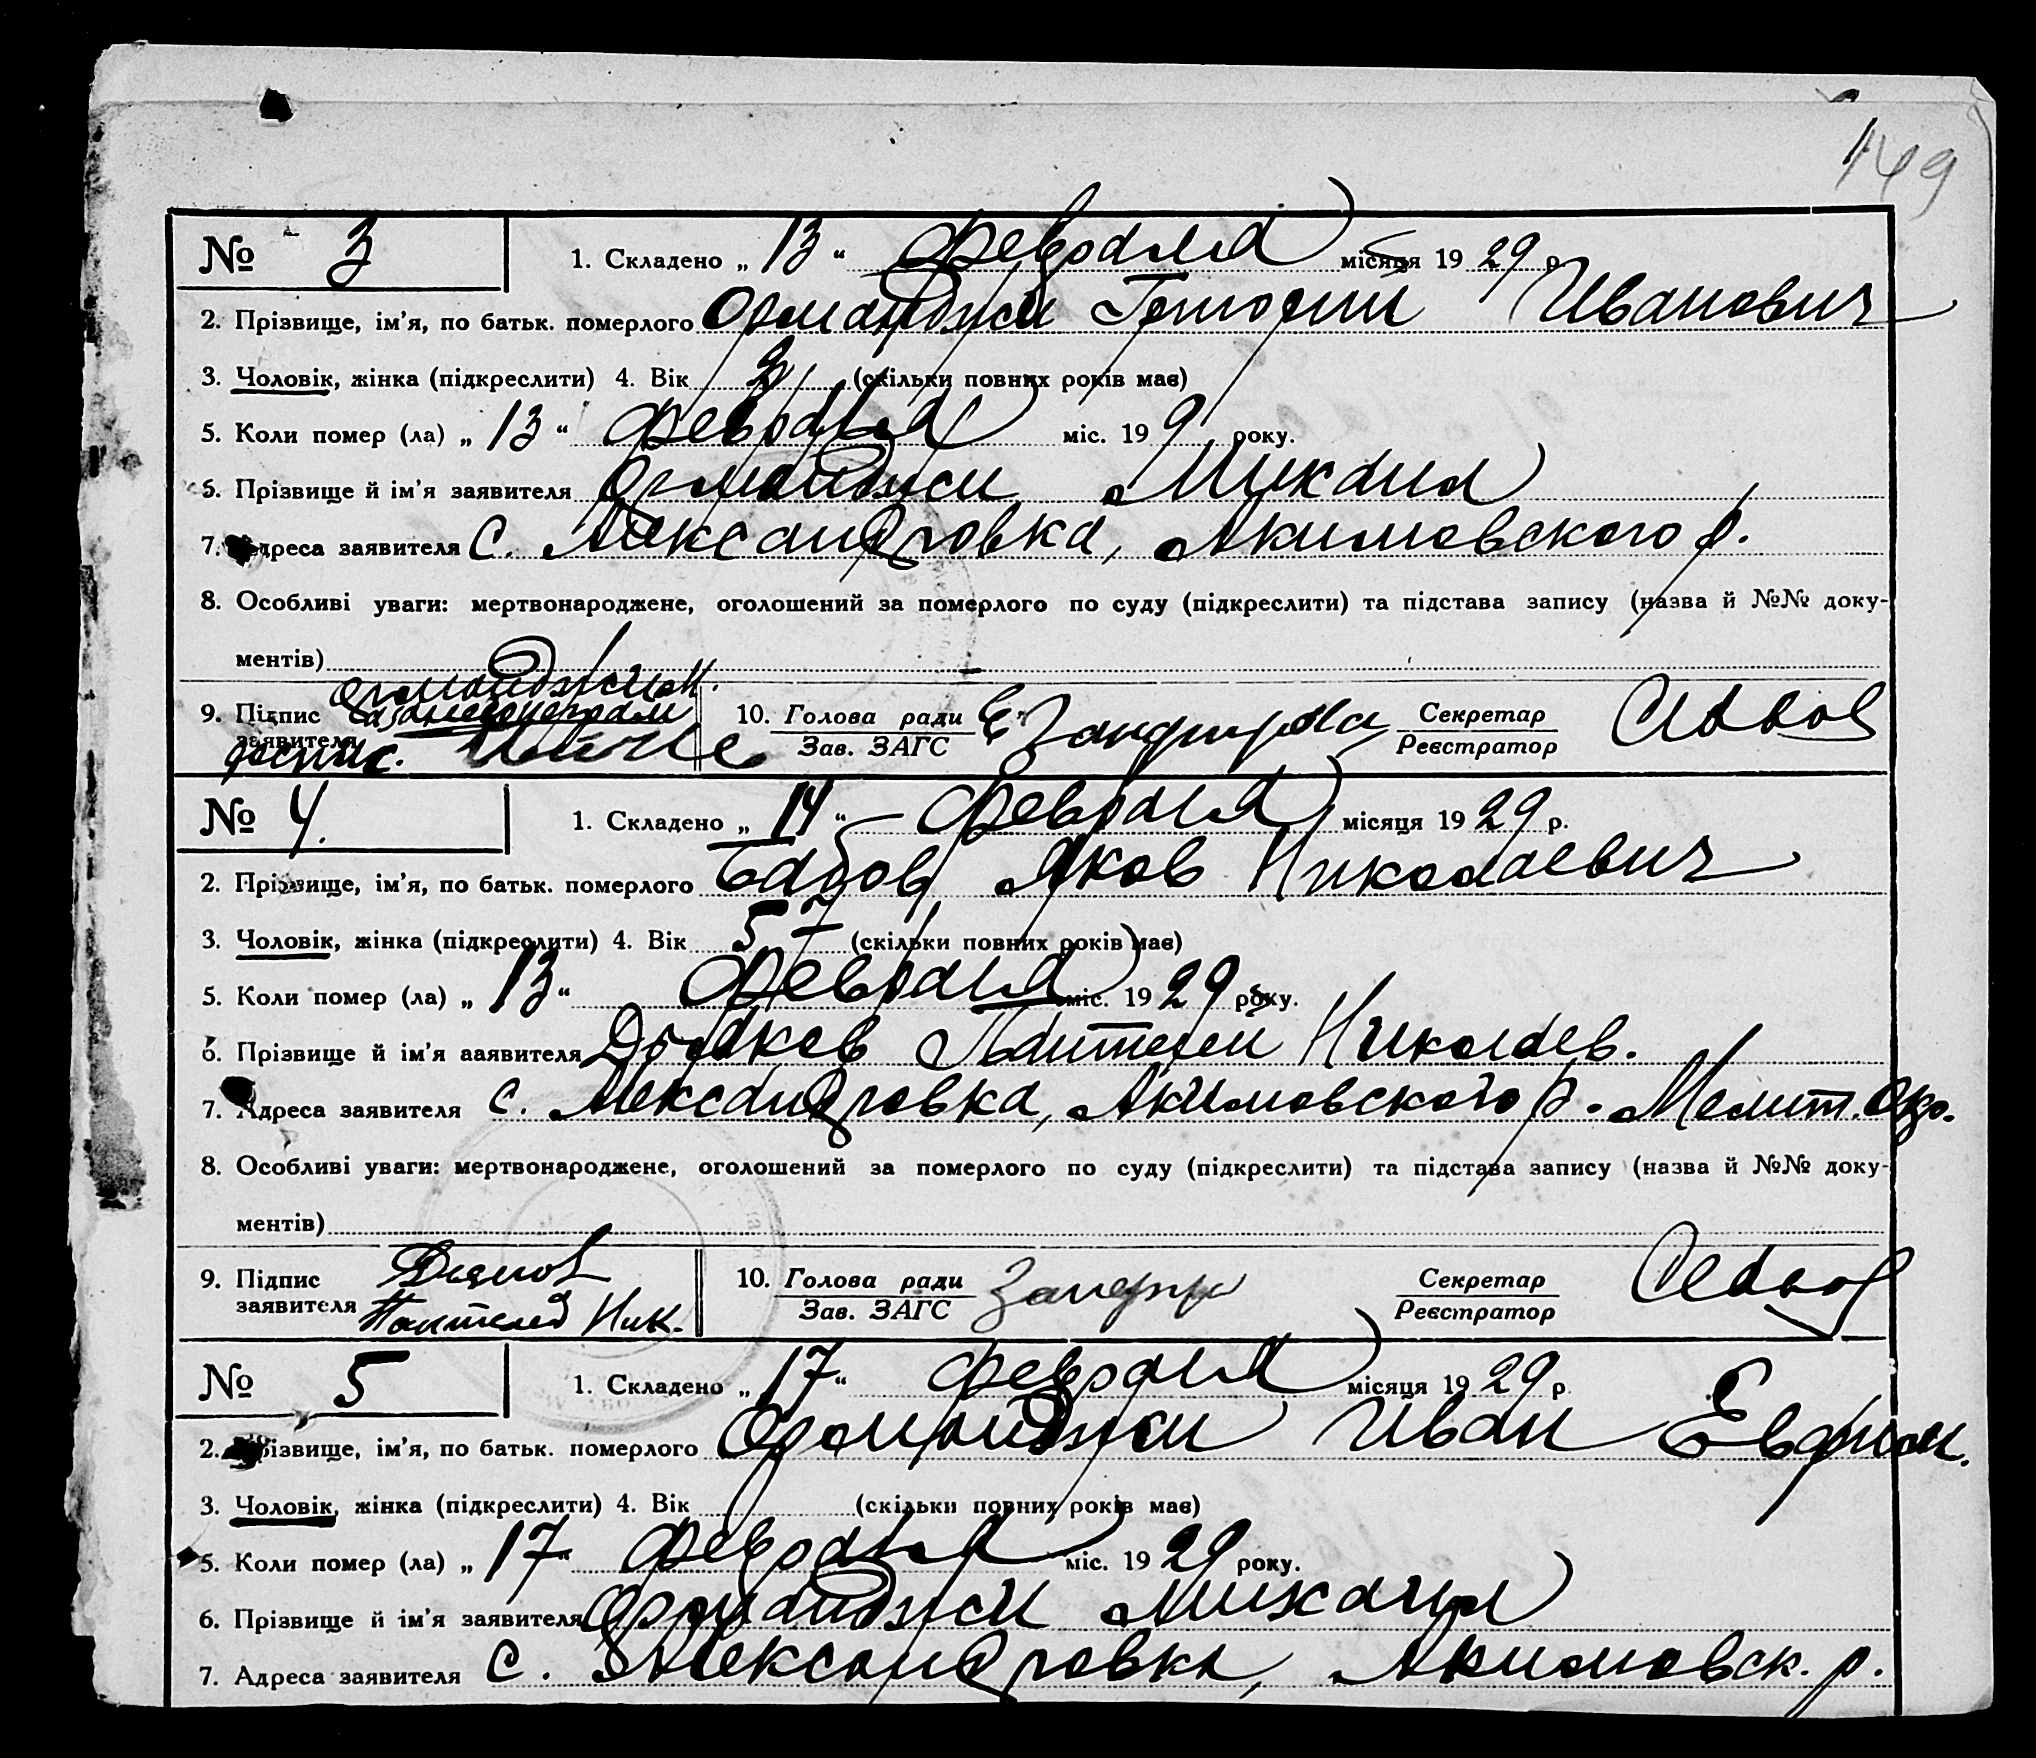 149
№ 3 1. Складено „ 13 “ Февраля місяця 19 29 р.
2. Прізвище, ім'я, по батьк. померлого Орманджи Григорий Иванович
3. Чоловік, жінка (підкреслити) 4. Вік 2 (скільки повних років має)
5. Коли помер (ла) „ 13 “ Февраля міс. 19 9 року.
6. Прізвище й ім'я заявителя Орманджи Михаил
7. Адреса заявителя с. Александровка, Акимовского р.
8. Особливі уваги: мертвонароджене, оголошений за померлого по суду (підкреслити) та підстава запису (назва й №№ доку-
ментів)
9. Підпис заявителя Орманджи М.
10. Голова ради Зав. ЗАГС Секретар Реєстратор
№ 4. 1. Складено „ 14 “ Февраля місяця 19 29 р.
2. Прізвище, ім'я, по батьк. померлого Бабов Яков Николаевич
3. Чоловік, жінка (підкреслити) 4. Вік 57 (скільки повних років має)
5. Коли помер (ла) „ 13 “ Февраля міс. 19 29 року.
6. Прізвище й ім'я заявителя Пантелей Николаев.
7. Адреса заявителя с. Александровка, Акимовского р. Мелит. Окр.
8. Особливі уваги: мертвонароджене, оголошений за померлого по суду (підкреслити) та підстава запису (назва й №№ доку-
ментів)
9. Підпис заявителя Пантелей Ник.
10. Голова ради Зав. ЗАГС Секретар Реєстратор
№ 5 1. Складено „ 17 “ Февраля місяця 19 29 р.
2. Прізвище, ім'я, по батьк. померлого Орманджи Иван Евфим.
3. Чоловік, жінка (підкреслити) 4. Вік (скільки повних років має)
5. Коли помер (ла) „ 17 “ Февраля міс. 19 29 року.
6. Прізвище й ім'я заявителя Орманджи Михаил
7. Адреса заявителя с. Александровка, Акимовск. р.